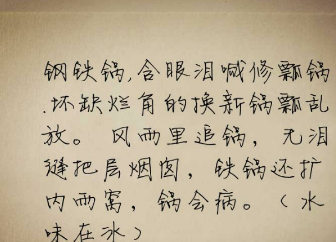 钢铁锅,含眼泪喊修瓢锅
.坏缺烂角的换新锅瓢乱
放。 风雨里追锅，无泪
缝把层烟囱，铁锅还扩
内雨窝，锅会病。（水
味在水）